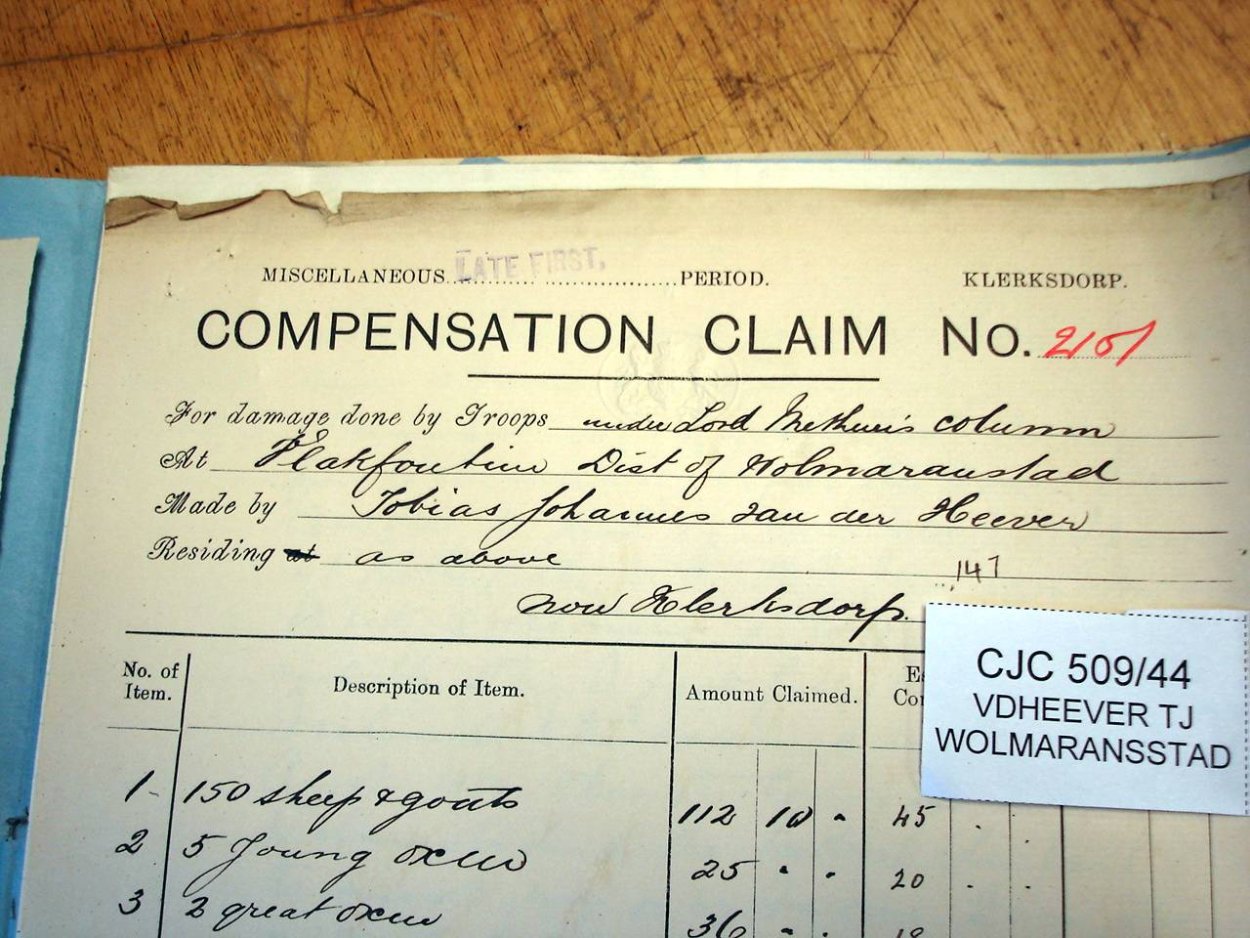 MISCELLANEOUS LATE FIRST, PERIOD. KLERKSDORP.
COMPENSATION CLAIM No. 2101
For damage done by Troops under Lord Methuen's column
At Vlakfontein Dist of Wolmaranstad
Made by Tobias Johannes van der Heever
Residing at as above
147
now Klerksdorp.
CJC 509/44
VDHEEVER TJ
WOLMARANSSTAD
No. of Item. Description of Item. Amount Claimed.
1 - 150 sheep & goats 112 10 - 45 . .
2 5 young oxen 25 . . 20 . .
3 2 great oxen 36 - .